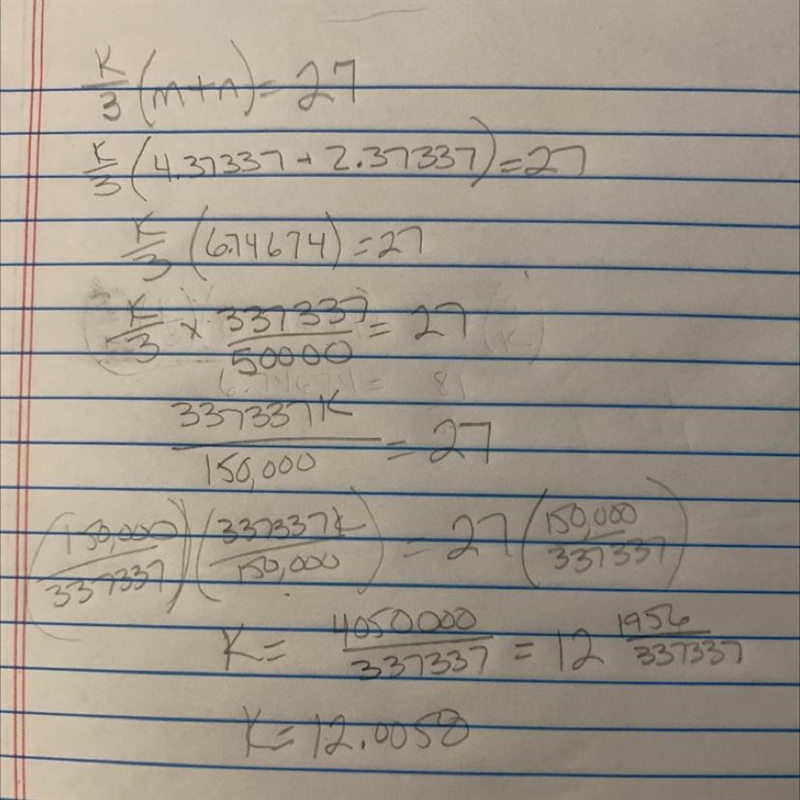 K/3 (m+n) = 27
K/3 (4.37337 + 2.37337) = 27
K/3 (6.74674) = 27
K/3 × 337337/50000 = 27
337337K/150,000 = 27
(150,000/337337)(337337K/150,000) = 27(150,000/337337)
K = 4050000/337337 = 12 1956/337337
K = 12.0058